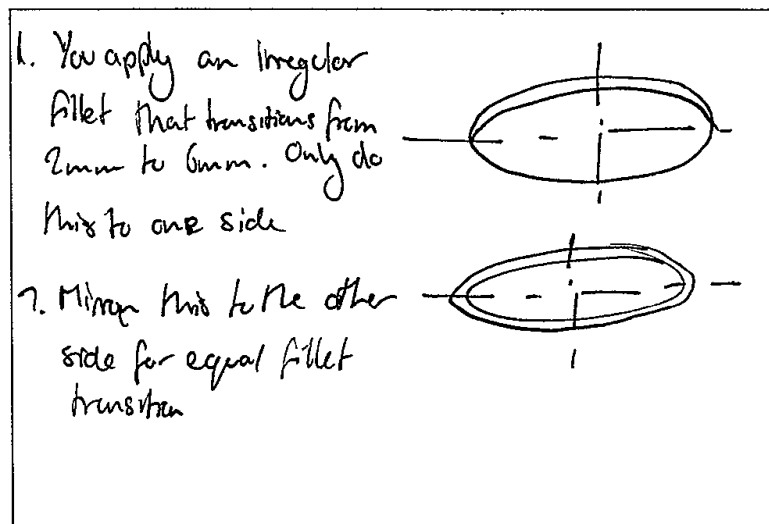 1. You apply an irregular
fillet that transitions from
2mm to 6mm. Only do
this to one side
2. Mirror this to the other
side for equal fillet
transition